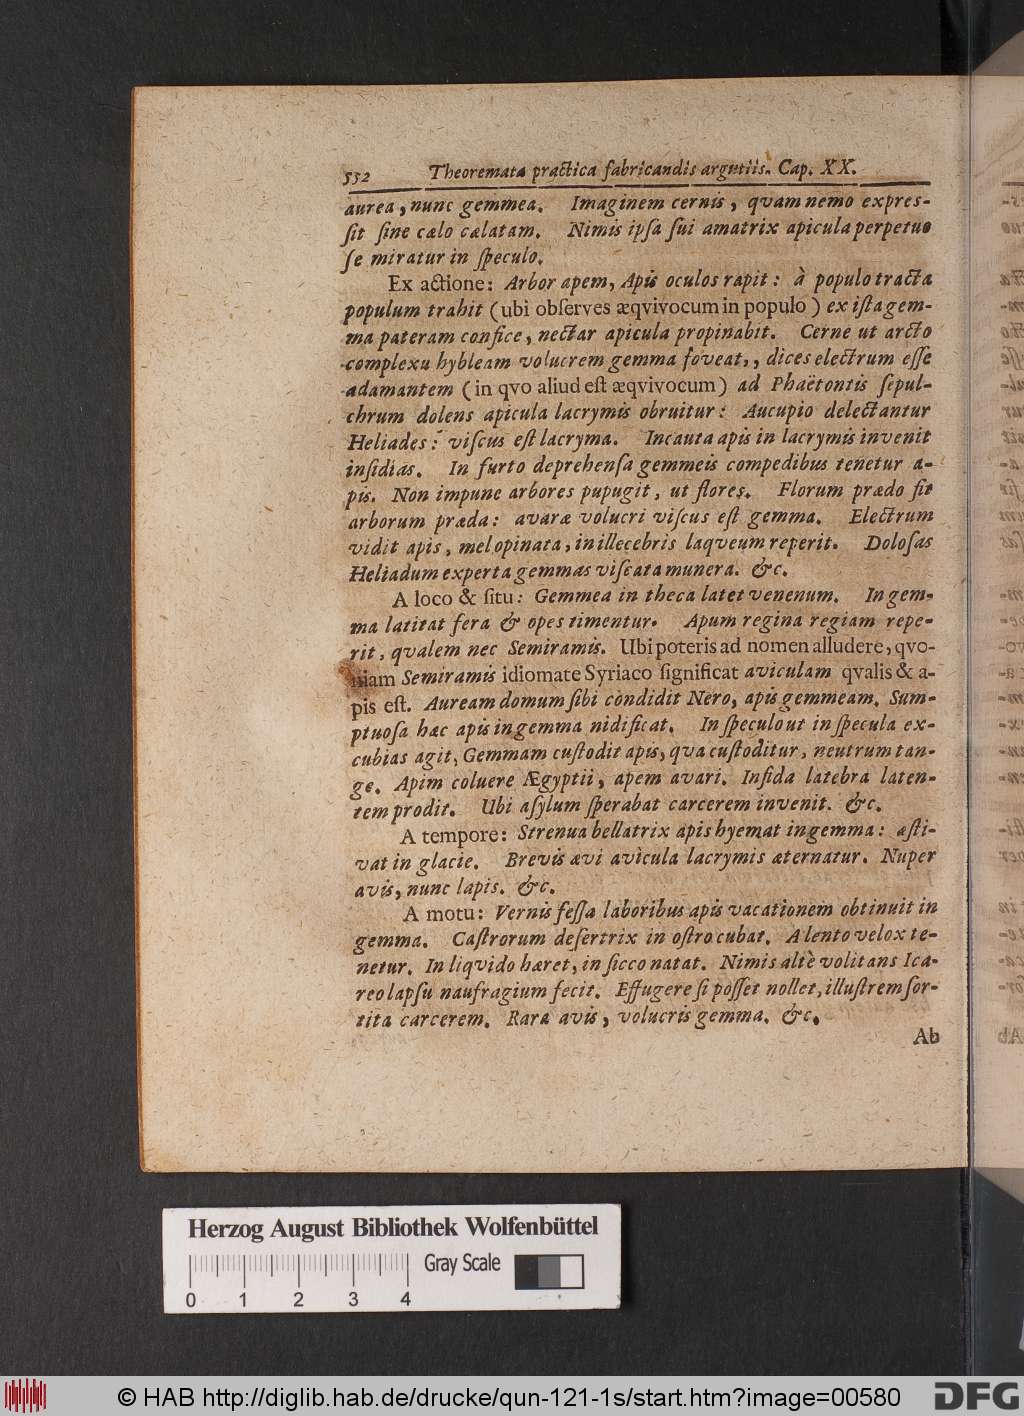 532 Theoremata practica fabricandis argutiis. Cap. XX.
aurea, nunc gemmea. Imaginem cernis, quam nemo expres-
ſit ſine cælo cælatam. Nimis ipſa ſui amatrix apicula perpetuo
ſe miratur in ſpeculo.
Ex actione: Arbor apem, Apis oculos rapit: à populo tracta
populum trahit (ubi obſerves æqvivocum in populo) ex iſta gem-
ma pateram confice, nectar apicula propinabit. Cerne ut arcto
complexu hybleam volucrem gemma foveat,, dices electrum eſſe
adamantem (in qvo aliud eſt æqvivocum) ad Phaëtontis ſepul-
chrum dolens apicula lacrymis obruitur: Aucupio delectantur
Heliades: viſcus eſt lacryma. Incauta apis in lacrymis invenit
inſidias. In furto deprehenſa gemmeis compedibus tenetur a-
pis. Non impune arbores pupugit, ut flores. Florum prædo fit
arborum præda: avaræ volucri viſcus eſt gemma. Electrum
vidit apis, mel opinata, in illecebris laqveum reperit. Doloſas
Heliadum experta gemmas viſcata munera. &c.
A loco & ſitu: Gemmea in theca latet venenum. In gem-
ma latitat fera & opes timentur. Apum regina regiam repe-
rit, qvalem nec Semiramis. Ubi poteris ad nomen alludere, qvo-
niam Semiramis idiomate Syriaco ſignificat aviculam qvalis & a-
pis eſt. Auream domum ſibi condidit Nero, apis gemmeam. Sum-
ptuoſa hæc apis in gemma nidificat. In ſpeculo ut in ſpecula ex-
cubias agit, Gemmam cuſtodit apis, qva cuſtoditur, neutrum tan-
ge. Apim coluere Ægyptii, apem avari. Inſida latebra laten-
tem prodit. Ubi aſylum ſperabat carcerem invenit. &c.
A tempore: Strenua bellatrix apis hyemat in gemma: æſti-
vat in glacie. Brevis ævi avicula lacrymis æternatur. Nuper
avis, nunc lapis. &c.
A motu: Vernis feſſa laboribus apis vacationem obtinuit in
gemma. Caſtrorum deſertrix in oſtro cubat. A lento velox te-
netur. In liqvido hæret, in ſicco natat. Nimis altè volitans Ica-
reo lapſu naufragium fecit. Effugere ſi poſſet nollet, illuſtrem ſor-
tita carcerem. Rara avis, volucris gemma. &c.
Ab
Herzog August Bibliothek Wolfenbüttel
Gray Scale
0 1 2 3 4
© HAB http://diglib.hab.de/drucke/qun-121-1s/start.htm?image=00580
DFG